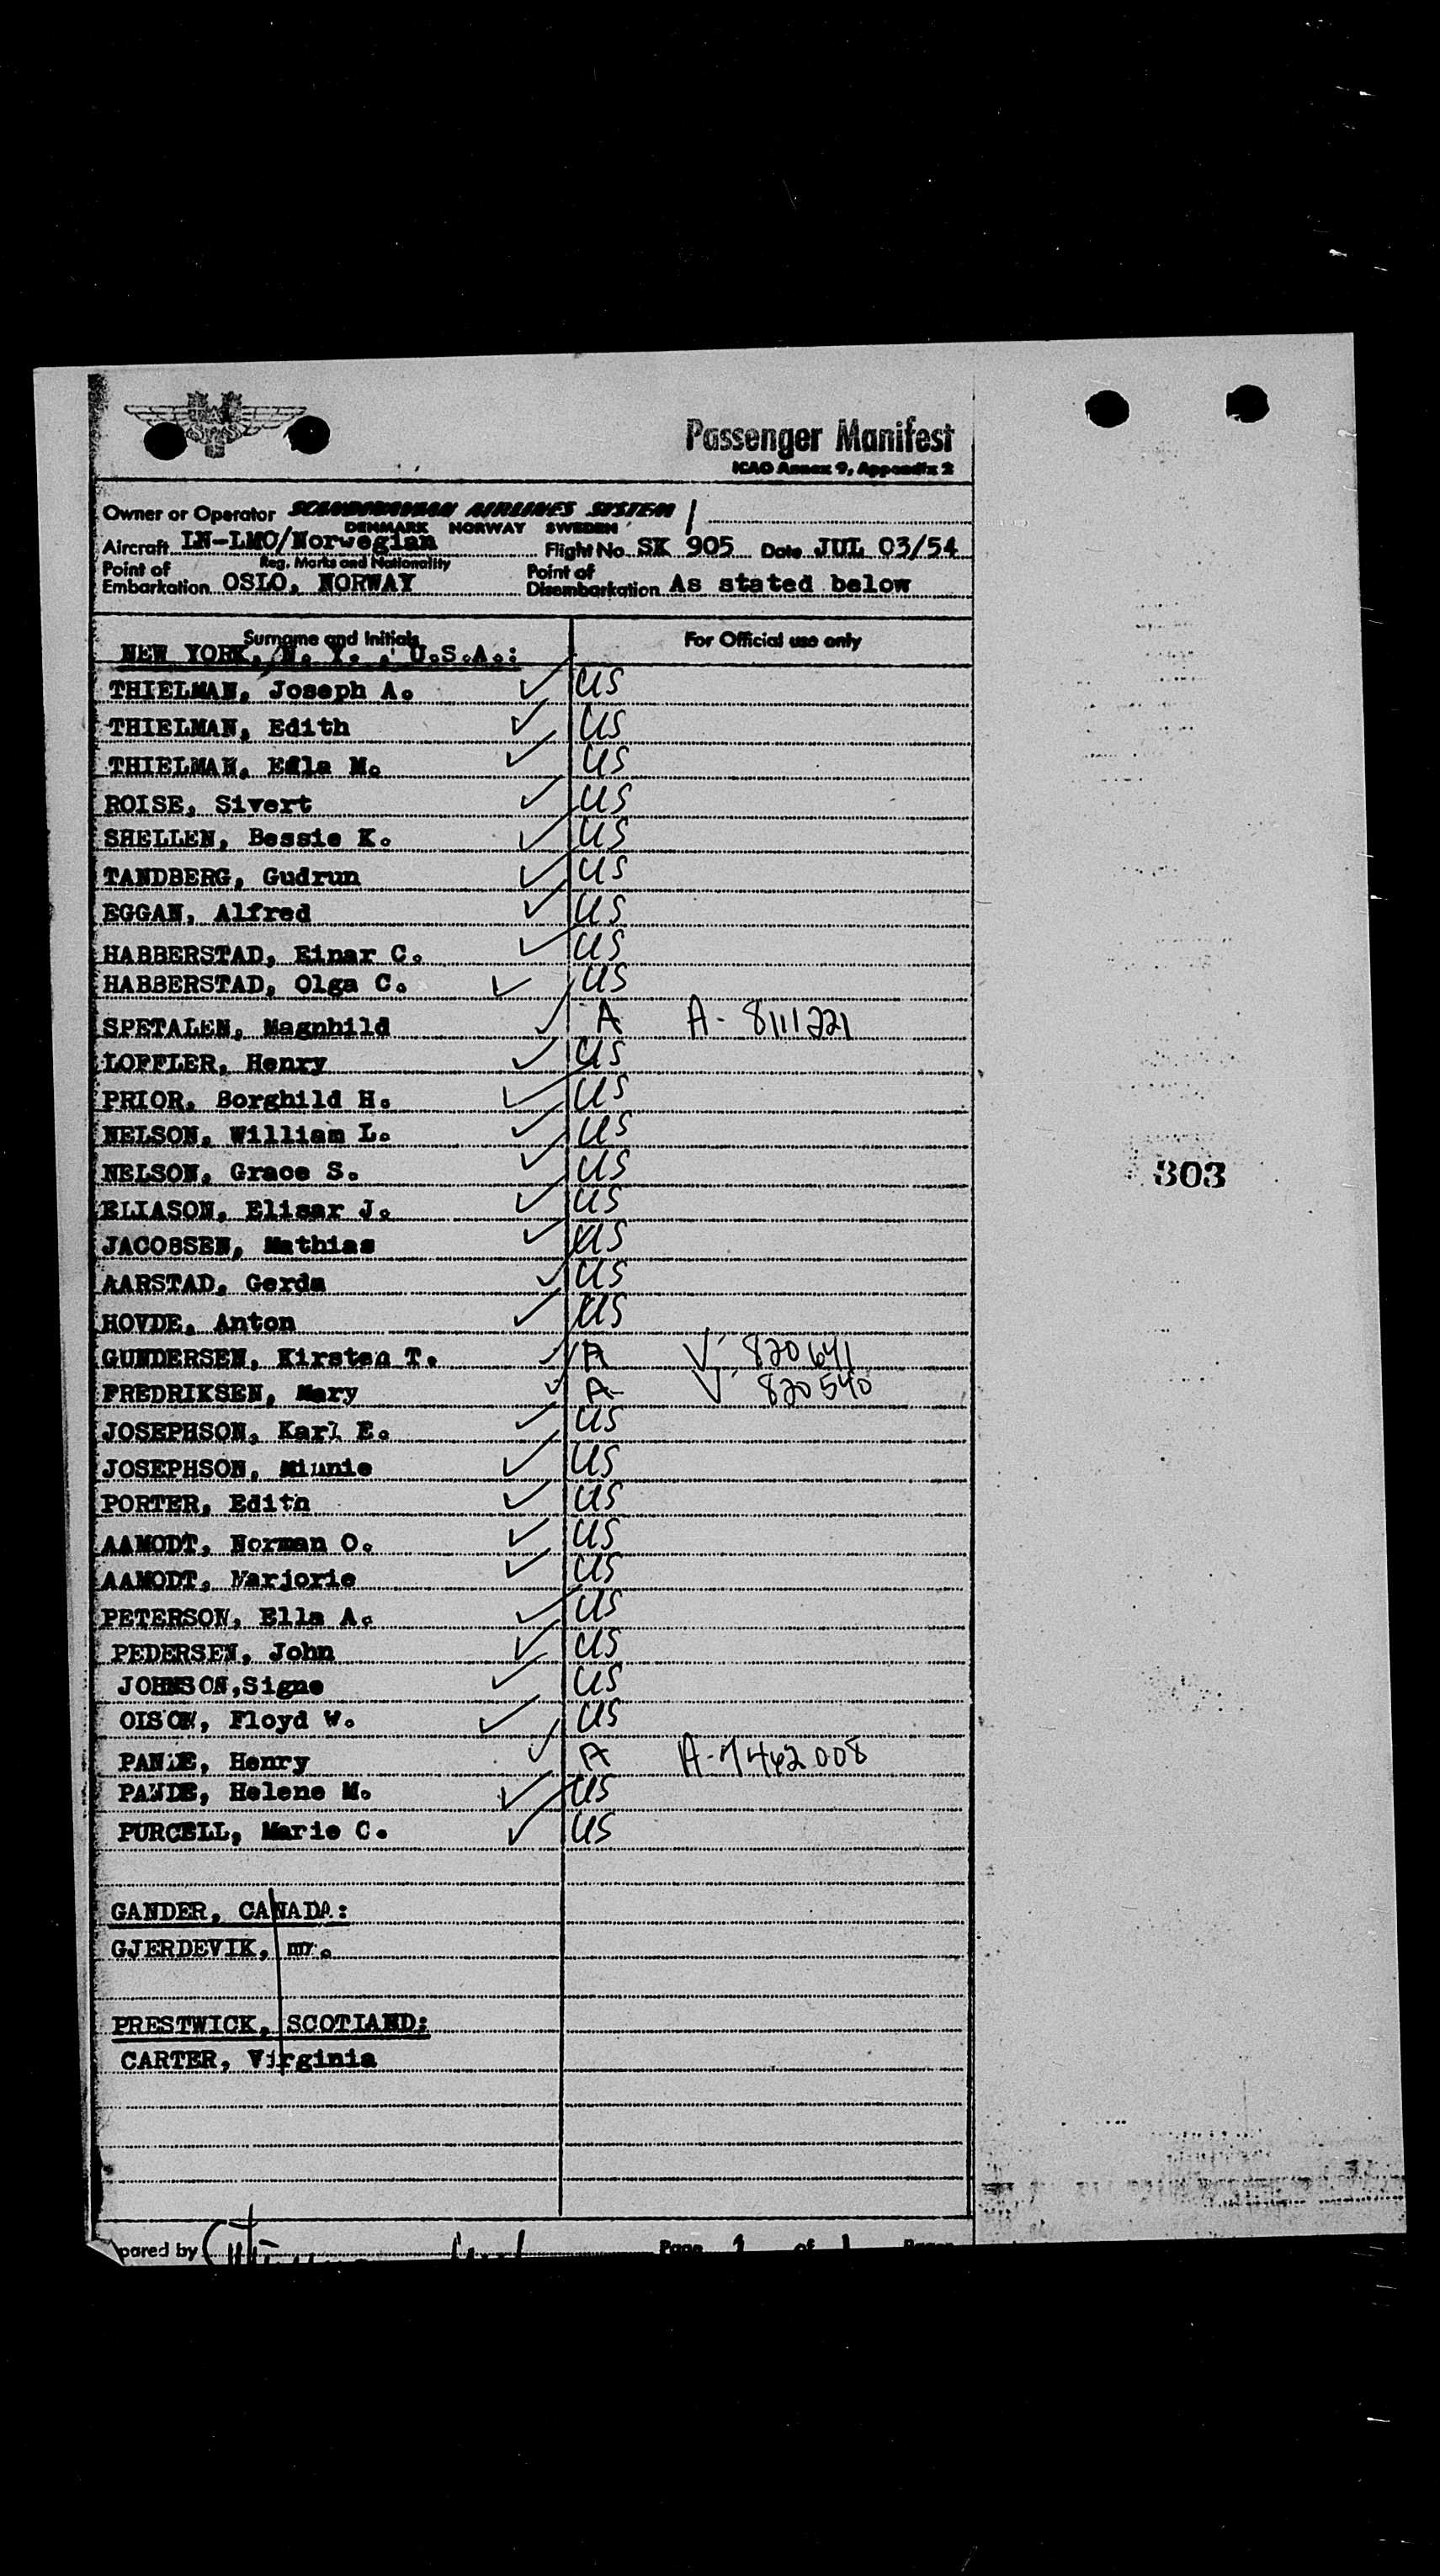 Passenger Manifest
ICAO Annex 9, Appendix 2
Owner or Operator SCANDINAVIAN AIRLINES SYSTEM
DENMARK NORWAY SWEDEN
Aircraft LN-LMO/Norwegian Flight No. SK 905 Date JUL 03/54
Reg. Marks and Nationality
Point of Embarkation OSLO, NORWAY Point of Disembarkation As stated below
Surname and Initials For Official use only
NEW YORK, N. Y. , U.S.A.:
THIELMAN, Joseph A. ✓ US
THIELMAN, Edith ✓ US
THIELMAN, Edla M. ✓ US
ROISE, Sivert ✓ US
SHELLEN, Bessie K. ✓ US
TANDBERG, Gudrun ✓ US
EGGAN, Alfred ✓ US
HABBERSTAD, Einar C. ✓ US
HABBERSTAD, Olga C. ✓ US
SPETALEN, Magnhild ✓ A A- 8111221
LOFFLER, Henry ✓ US
PRIOR, Borghild H. ✓ US
NELSON, William L. ✓ US
NELSON, Grace S. ✓ US
ELIASON, Elisar J. ✓ US
JACOBSEN, Mathias ✓ US
AARSTAD, Gerda ✓ US
HOVDE, Anton ✓ US
GUNDERSEN, Kirsten T. ✓ A V 820641
FREDRIKSEN, Mary ✓ A- V 820540
JOSEPHSON, Karl E. ✓ US
JOSEPHSON, Minnie ✓ US
PORTER, Edith ✓ US
AAMODT, Norman O. ✓ US
AAMODT, Marjorie ✓ US
PETERSON, Ella A. ✓ US
PEDERSEN, John ✓ US
JOHNSON,Signe ✓ US
OLSON, Floyd W. ✓ US
PANDE, Henry ✓ A A-7462008
PANDE, Helene M. ✓ US
PURCELL, Marie C. ✓ US
GANDER, CANADA:
GJERDEVIK, mr.
PRESTWICK, SCOTLAND:
CARTER, Virginia
pared by
Page 1 of 1 Pages
303